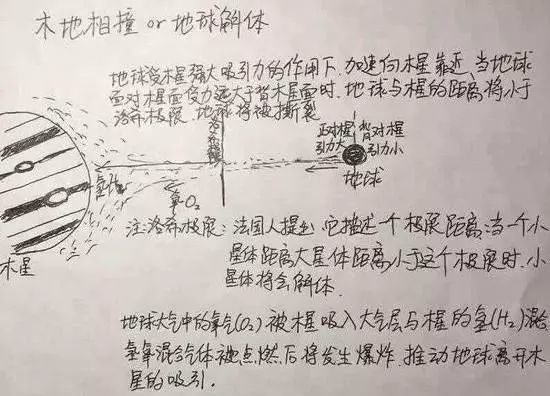 木地相撞 or 地球解体
地球受木星强大吸引力的作用下,加速向木星靠近,当地球
面对木星面受力远大于背木星面时,地球与木星的距离将小于
洛希极限,地球将被撕裂
正对木星 背对木星
引力大 引力小
地球
O₂
木星
注:洛希极限:法国人提出,它描述一个极限距离,当一个小
星体距离大星体距离小于这个极限时,小
星体将会解体.
地球大气中的氧气(O₂)被木星吸入大气层与木星的氢(H₂)混,
氢氧混合气体被点燃后将发生爆炸,推动地球离开木
星的吸引.